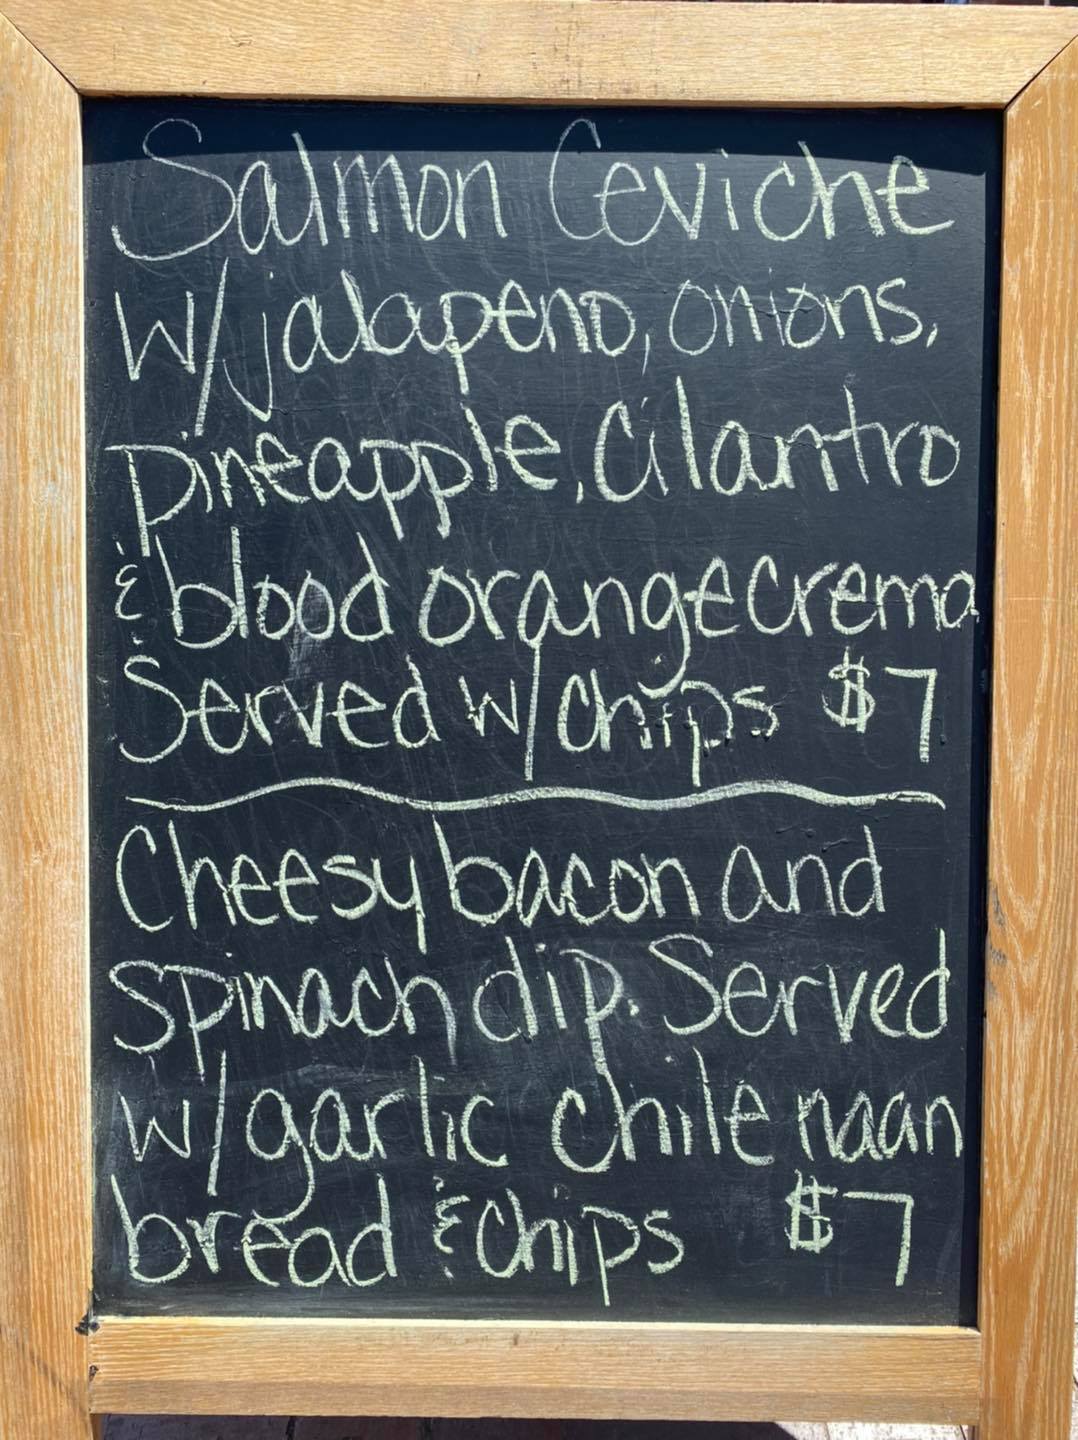 Salmon Ceviche
w/jalapeno, onions,
pineapple, Cilantro
& blood orange crema
Served w/chips $7
Cheesy bacon and
spinach dip. Served
w/garlic chile naan
bread & chips $7